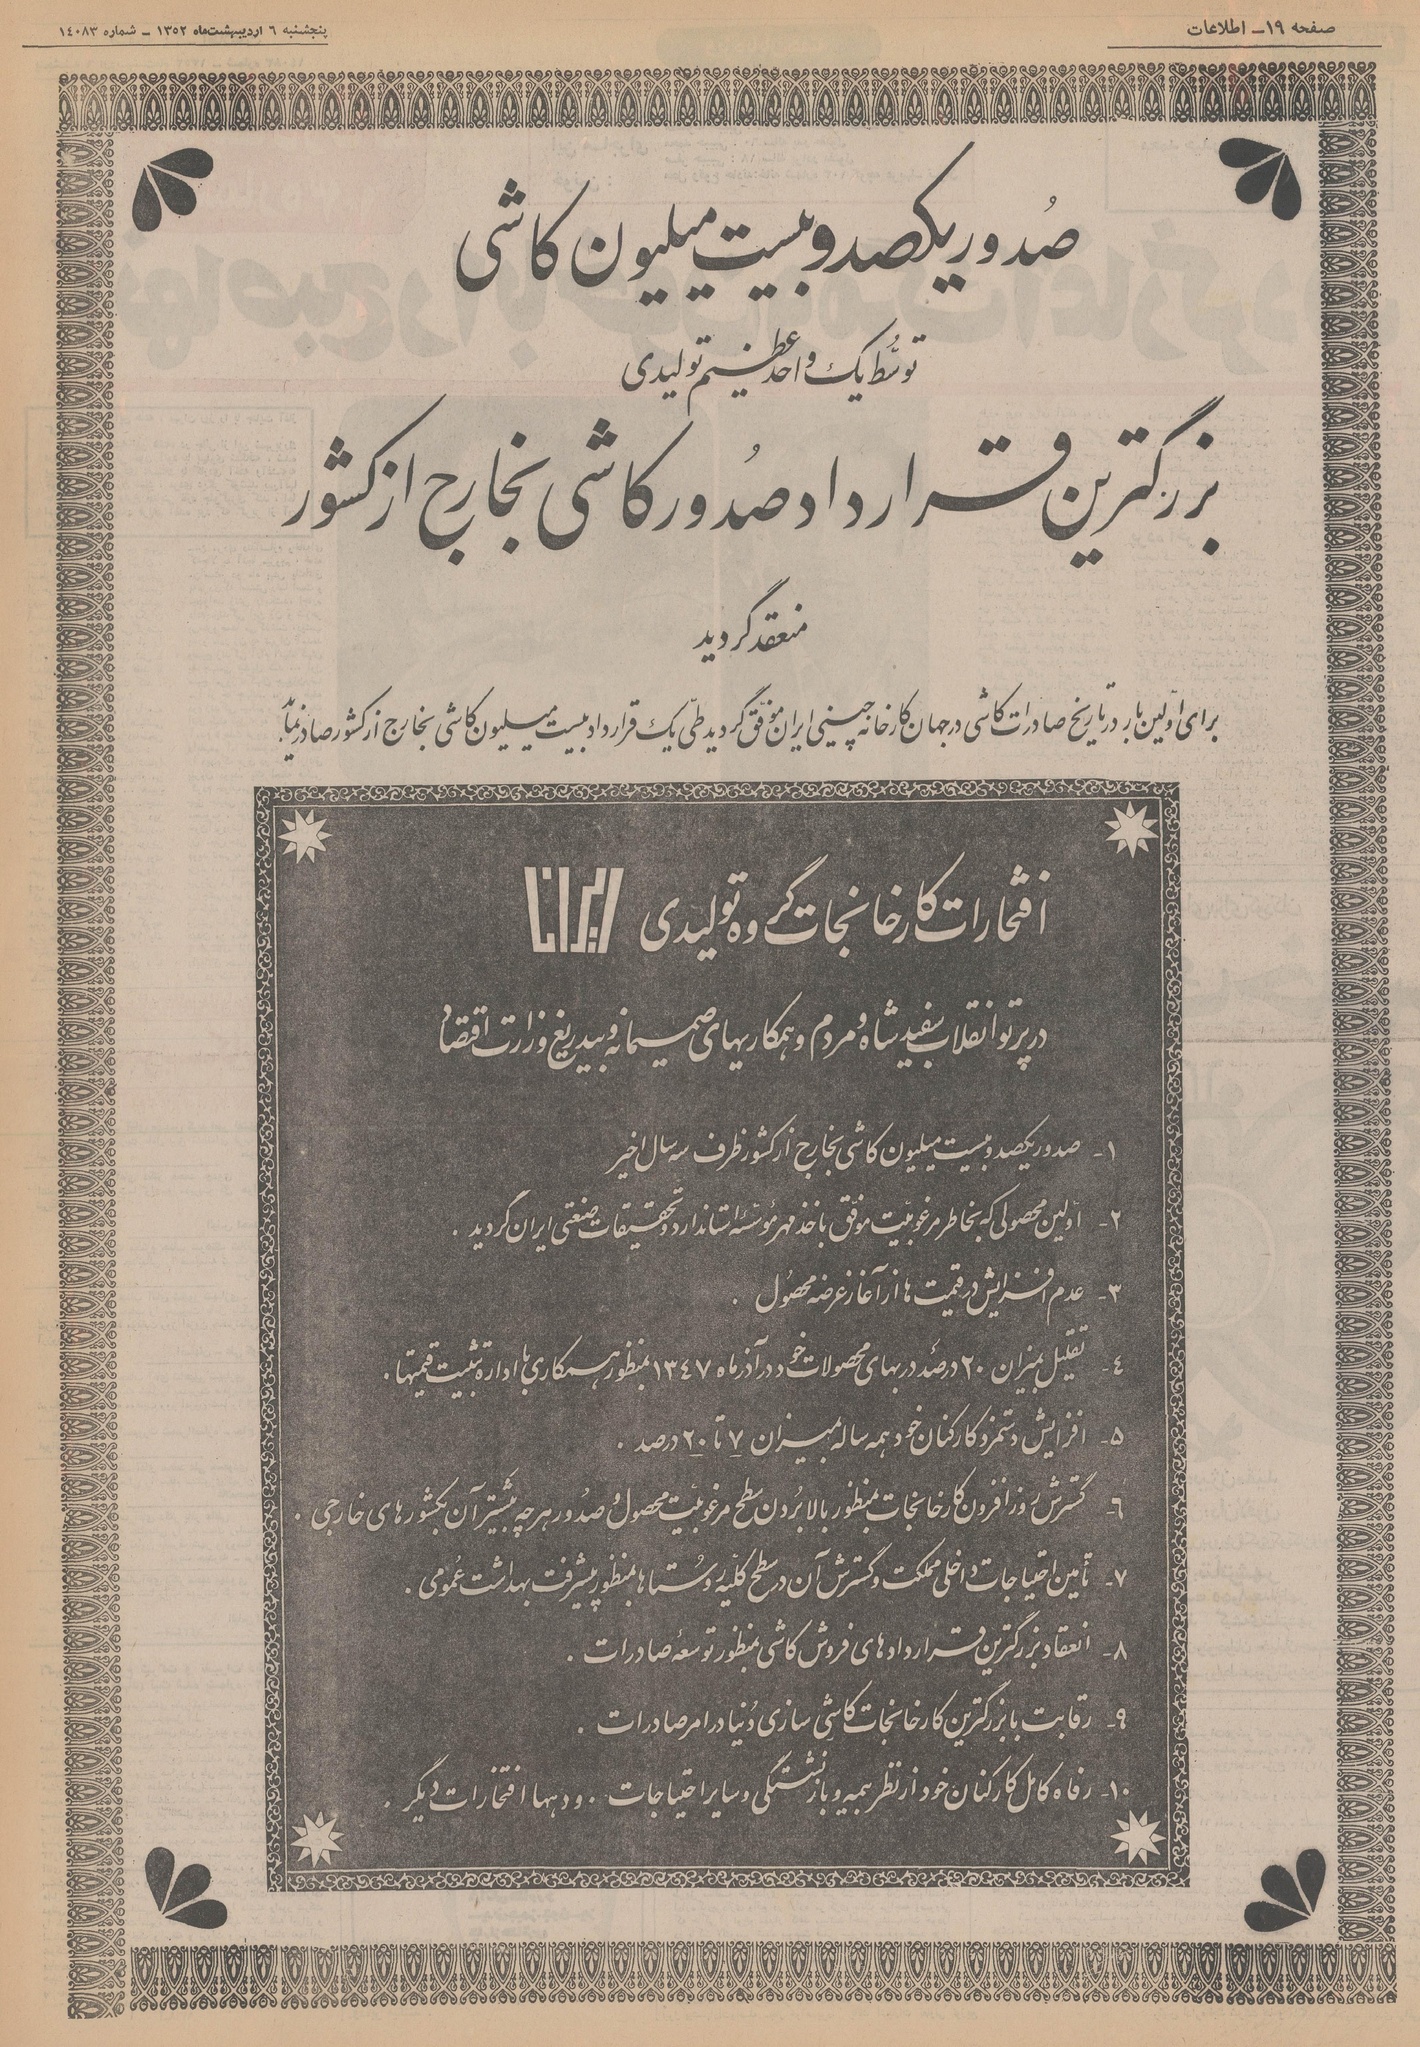 صفحه ۱۹ـ اطلاعات
پنجشنبه ۶ اردیبهشت‌ماه ۱۳۵۲ ـ شماره ۱۴۰۸۳
صدور یکصد و بیست میلیون کاشی
توسط یک واحد عظیم تولیدی
بزرگترین قرارداد صدور کاشی بخارج از کشور
منعقد گردید
برای اولین بار در تاریخ صادرات کاشی در جهان کارخانه چینی ایران موفق گردید طی یک قرارداد بیست میلیون کاشی بخارج از کشور صادر نماید.
افتخارات کارخانجات گروه تولیدی ایرانا
در پرتو انقلاب سفید شاه و مردم و همکاریهای صمیمانه و بیدریغ وزارت اقتصاد
۱ـ صدور یکصد و بیست میلیون کاشی بخارج از کشور ظرف سه سال اخیر
۲ـ اولین محصولی که بخاطر مرغوبیت موفق باخذ مهر مؤسسه استاندارد و تحقیقات صنعتی ایران گردید .
۳ـ عدم افزایش در قیمت ها از آغاز عرضه محصول .
۴ـ تقلیل بمیزان ۲۰ درصد در بهای محصولات خود در آذر ماه ۱۳۴۷ بمنظور همکاری با اداره تثبیت قیمتها .
۵ـ افزایش دستمزد کارکنان خود همه ساله بمیزان ۷ تا ۲۰ درصد .
۶ـ گسترش روز افزون کارخانجات بمنظور بالا بردن سطح مرغوبیت محصول و صدور هر چه بیشتر آن بکشور های خارجی .
۷ـ تأمین احتیاجات داخلی مملکت و گسترش آن در سطح کلیه روستاها بمنظور پیشرفت بهداشت عمومی .
۸ـ انعقاد بزرگترین قرارداد های فروش کاشی بمنظور توسعه صادرات .
۹ـ رقابت با بزرگترین کارخانجات کاشی سازی دنیا در امر صادرات .
۱۰ـ رفاه کامل کارکنان خود از نظر بیمه و بازنشستگی و سایر احتیاجات . و دهها افتخارات دیگر .